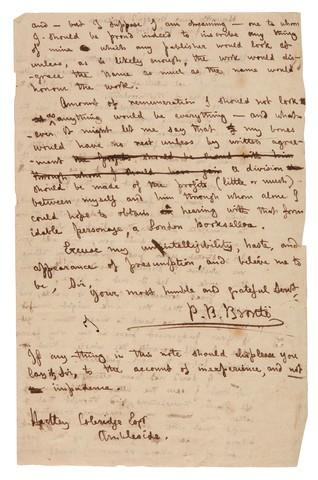 and – but I suppose I am dreaming – one to whom
I should be proud indeed to inscribe any thing
of mine which any publisher would look at
unless, as is likely enough, the work would dis-
grace the name as much as the name would
honour the work.
Amount of remuneration I should not look
to as anything would be everything – and what-
ever it might let me say that my bones
would have no rest unless by written agree-
ment the profits should be shared with him
through whom I should have a division
should be made of the profits (little or much)
between myself and him through whom alone I
could hope to obtain a hearing with that form-
idable personage, a London bookseller.
Excuse my unintelligibility, haste, and
appearance of presumption, and believe me to
be, Sir,
Your most humble and grateful Servt
P. B. Brontë
If any thing in this note should displease you
lay it, sir, to the account of inexperience, and not
impudence.
Hartley Coleridge Esqr
Ambleside.